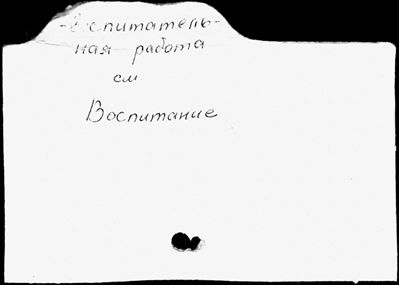 Воспитатель-
ная работа
см
Воспитание